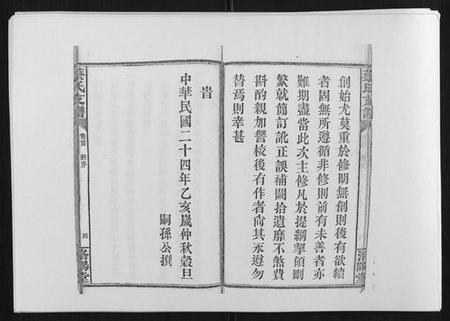 創始尤莫重於修明無創則後有欲續
者固無所遵循非修則前有未善者亦
難期盡當此次主修凡於提綱挈領刪
繁就簡訂訛正誤補闕拾遺靡不煞費
斟酌親加讐校後有作者尙其永遵勿
替焉則幸甚
旹
中華民國二十四年乙亥歲仲秋穀旦
嗣孫公撰
葉氏支譜
卷首 新序
四